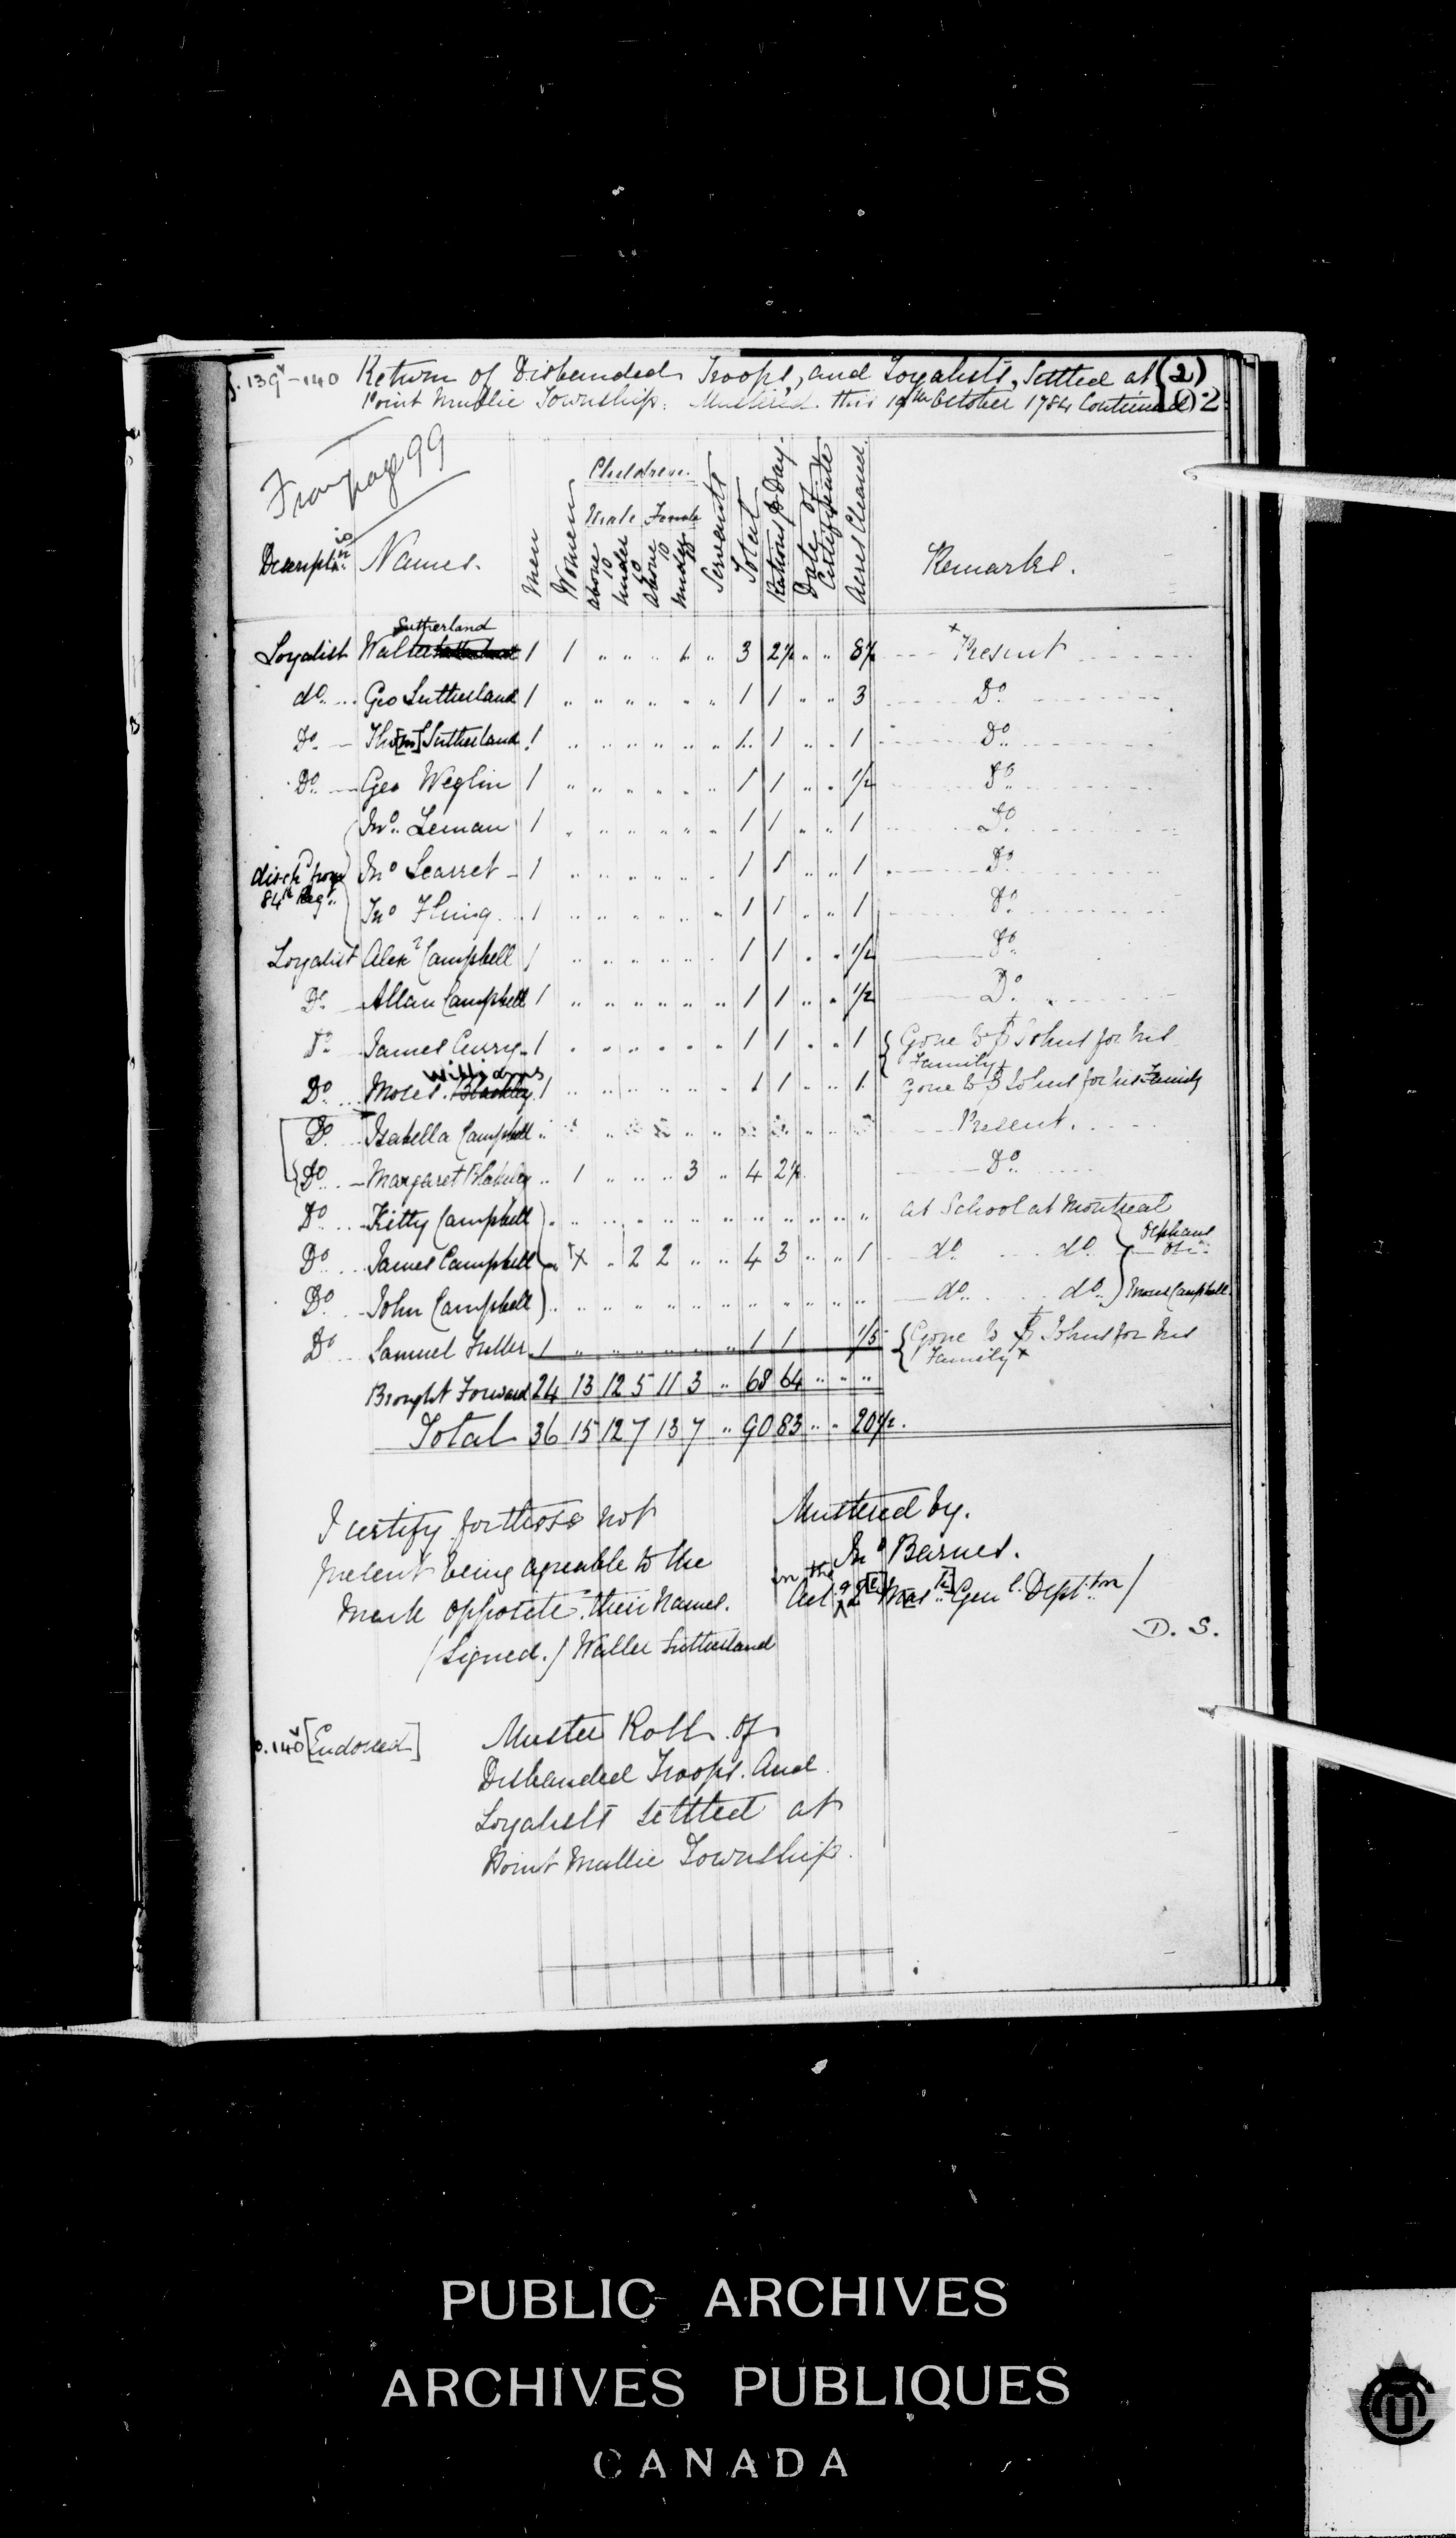 f. 139v-140 Return of Disbanded Troops, and Loyalists, Settled at (2)
Point Mullie Township: Mustered this 19th October 1784 Continued 2
From page 99
Children.
Male Female
Descriptions Names. Men Women above 10 under 10 above 10 under 10 Servants Total Rations p Day. Date of Certificate Acres Cleared. Remarks.
Sutherland
Loyalist Walter 1 1 " " " 1 " 3 2½ " " 8½ Present
do Geo Sutherland 1 " " " " " " 1 1 " " 3 Do
Do Tho[m] Sutherland 1 " " " " " " 1 1 " " 1 Do
Do Geo Weglin 1 " " " " " " 1 1 " " 1/2 Do
Jno. Leman 1 " " " " " " 1 1 " " 1 Do
disch'd from Jno Scarret 1 " " " " " " 1 1 " " 1 Do
84th Regt. Jno Fling 1 " " " " " " 1 1 " " 1 Do
Loyalist Alexr Campbell 1 " " " " " " 1 1 " " 1/2 Do
Do Allan Campbell 1 " " " " " " 1 1 " " 1/2 Do
Do James Curry 1 " " " " " " 1 1 " " 1 Gone to St Johns for his
Family
Williams
Do Moses Blackley 1 " " " " " " 1 1 " " 1 Gone to St Johns for his Family
Do Isabella Campbell Present.
Do Margaret Blakely " 1 " " " 3 " 4 2½ Do
Do Kitty Campbell " " " " " " " " " " " " at School at Montreal
Do James Campbell " X " 2 2 " " 4 3 " " 1 do do Orphans
Do John Campbell " " " " " " " " " " " " do do Moses Campbell
Do Samuel Fuller 1 " " " " " " 1 1 1/5 Gone to St Johns for his
Family x
Brought Forward 24 13 12 5 11 3 " 68 64 " " "
Total 36 15 12 7 13 7 " 90 83 " " 20½.
I certify for those not
present being agreable to the
mark opposite their Names.
(Signed.) Walter Sutherland
Mustered by.
Jno Barnes.
in the
Act.g Q[r] Mas[r] Genl. Deptm /
D. S.
p. 140v [Endorsed] Muster Roll of
Disbanded Troops. And
Loyalists settled at
Point Mullie Township.
PUBLIC ARCHIVES
ARCHIVES PUBLIQUES
CANADA